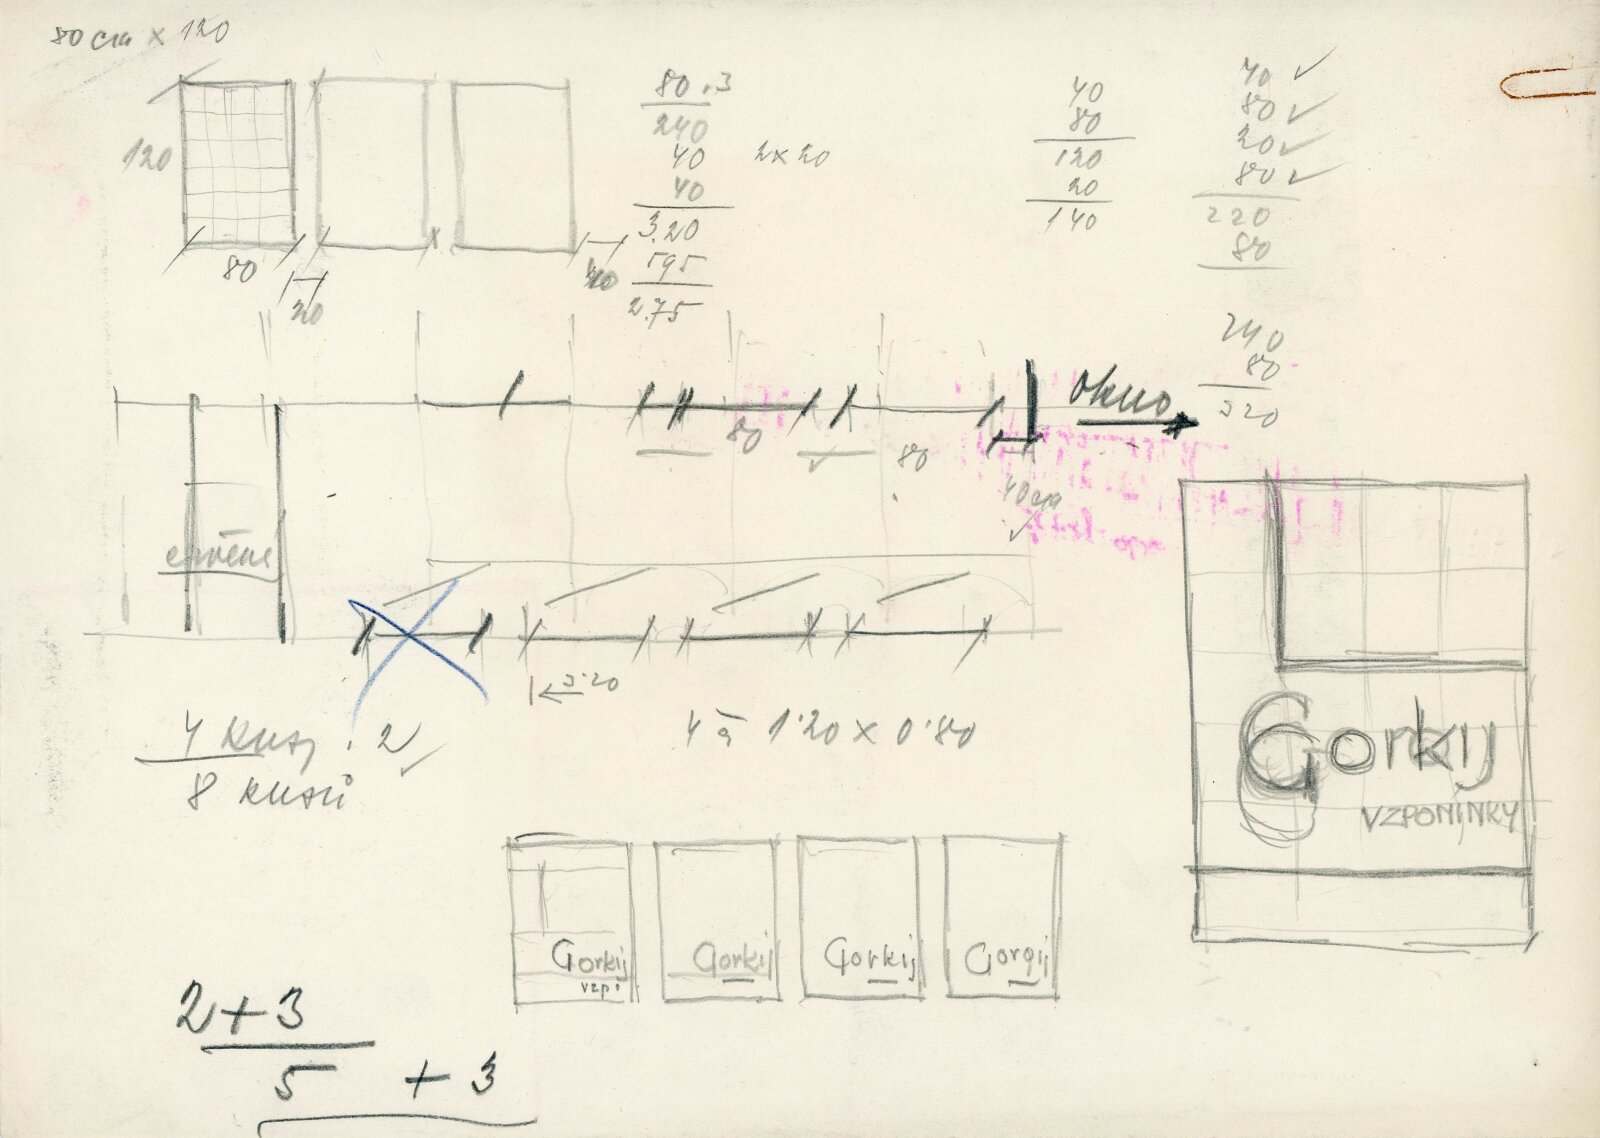 80 cm x 120
120
80
20
40
80 .3
240
40
40
3.20
595
2.75
2x20
40
80
120
20
140
40 ✓
80 ✓
20 ✓
80 ✓
220
80
240
80
320
okno
80
80
40 cm
✓
červené
3·20
4 kusy . 2 ✓
8 kusů
4 à 1·20 x 0·80
Gorkij
VZPOMÍNKY
Gorkij
vzpo
Gorkij
Gorkij
Gorgij
2+3
5 + 3